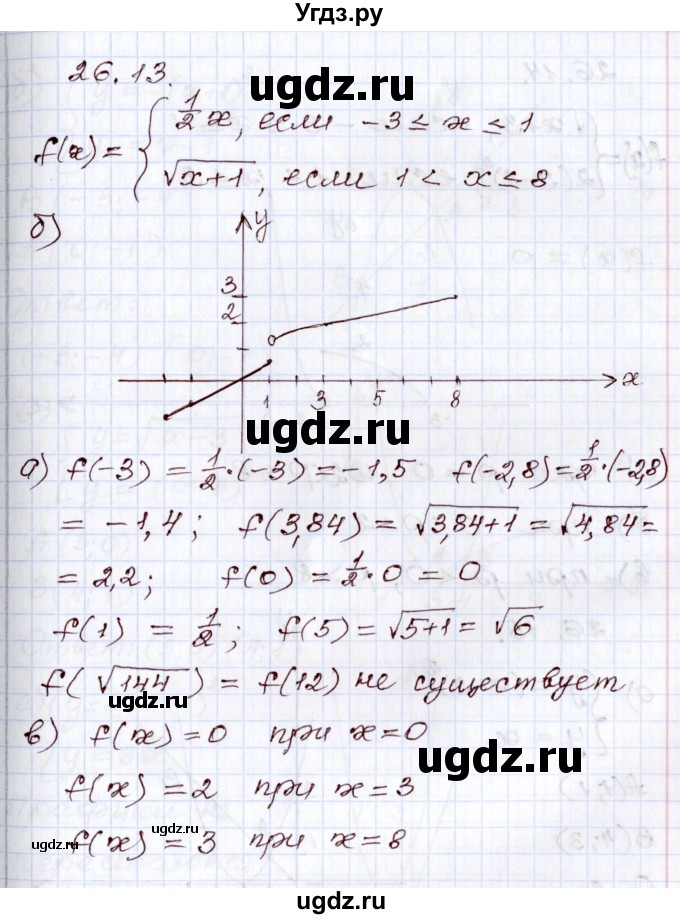 Угдз.ру
26.13.
ugdz.ru
f(x) = { 1/2 x, если -3 ≤ x ≤ 1
√x+1, если 1 < x ≤ 8
б)
y
3
2
1 3 5 8 x
ugdz.ru
а) f(-3) = 1/2·(-3) = -1,5 f(-2,8) = 1/2·(-2,8)
= -1,4; f(3,84) = √3,84+1 = √4,84 =
= 2,2; f(0) = 1/2·0 = 0
f(1) = 1/2; f(5) = √5+1 = √6
f(√144) = f(12) не существует
в) f(x) = 0 при x = 0
ugdz.ru
f(x) = 2 при x = 3
ugdz.ru
ugdz.ru
f(x) = 3 при x = 8
ugdz.ru